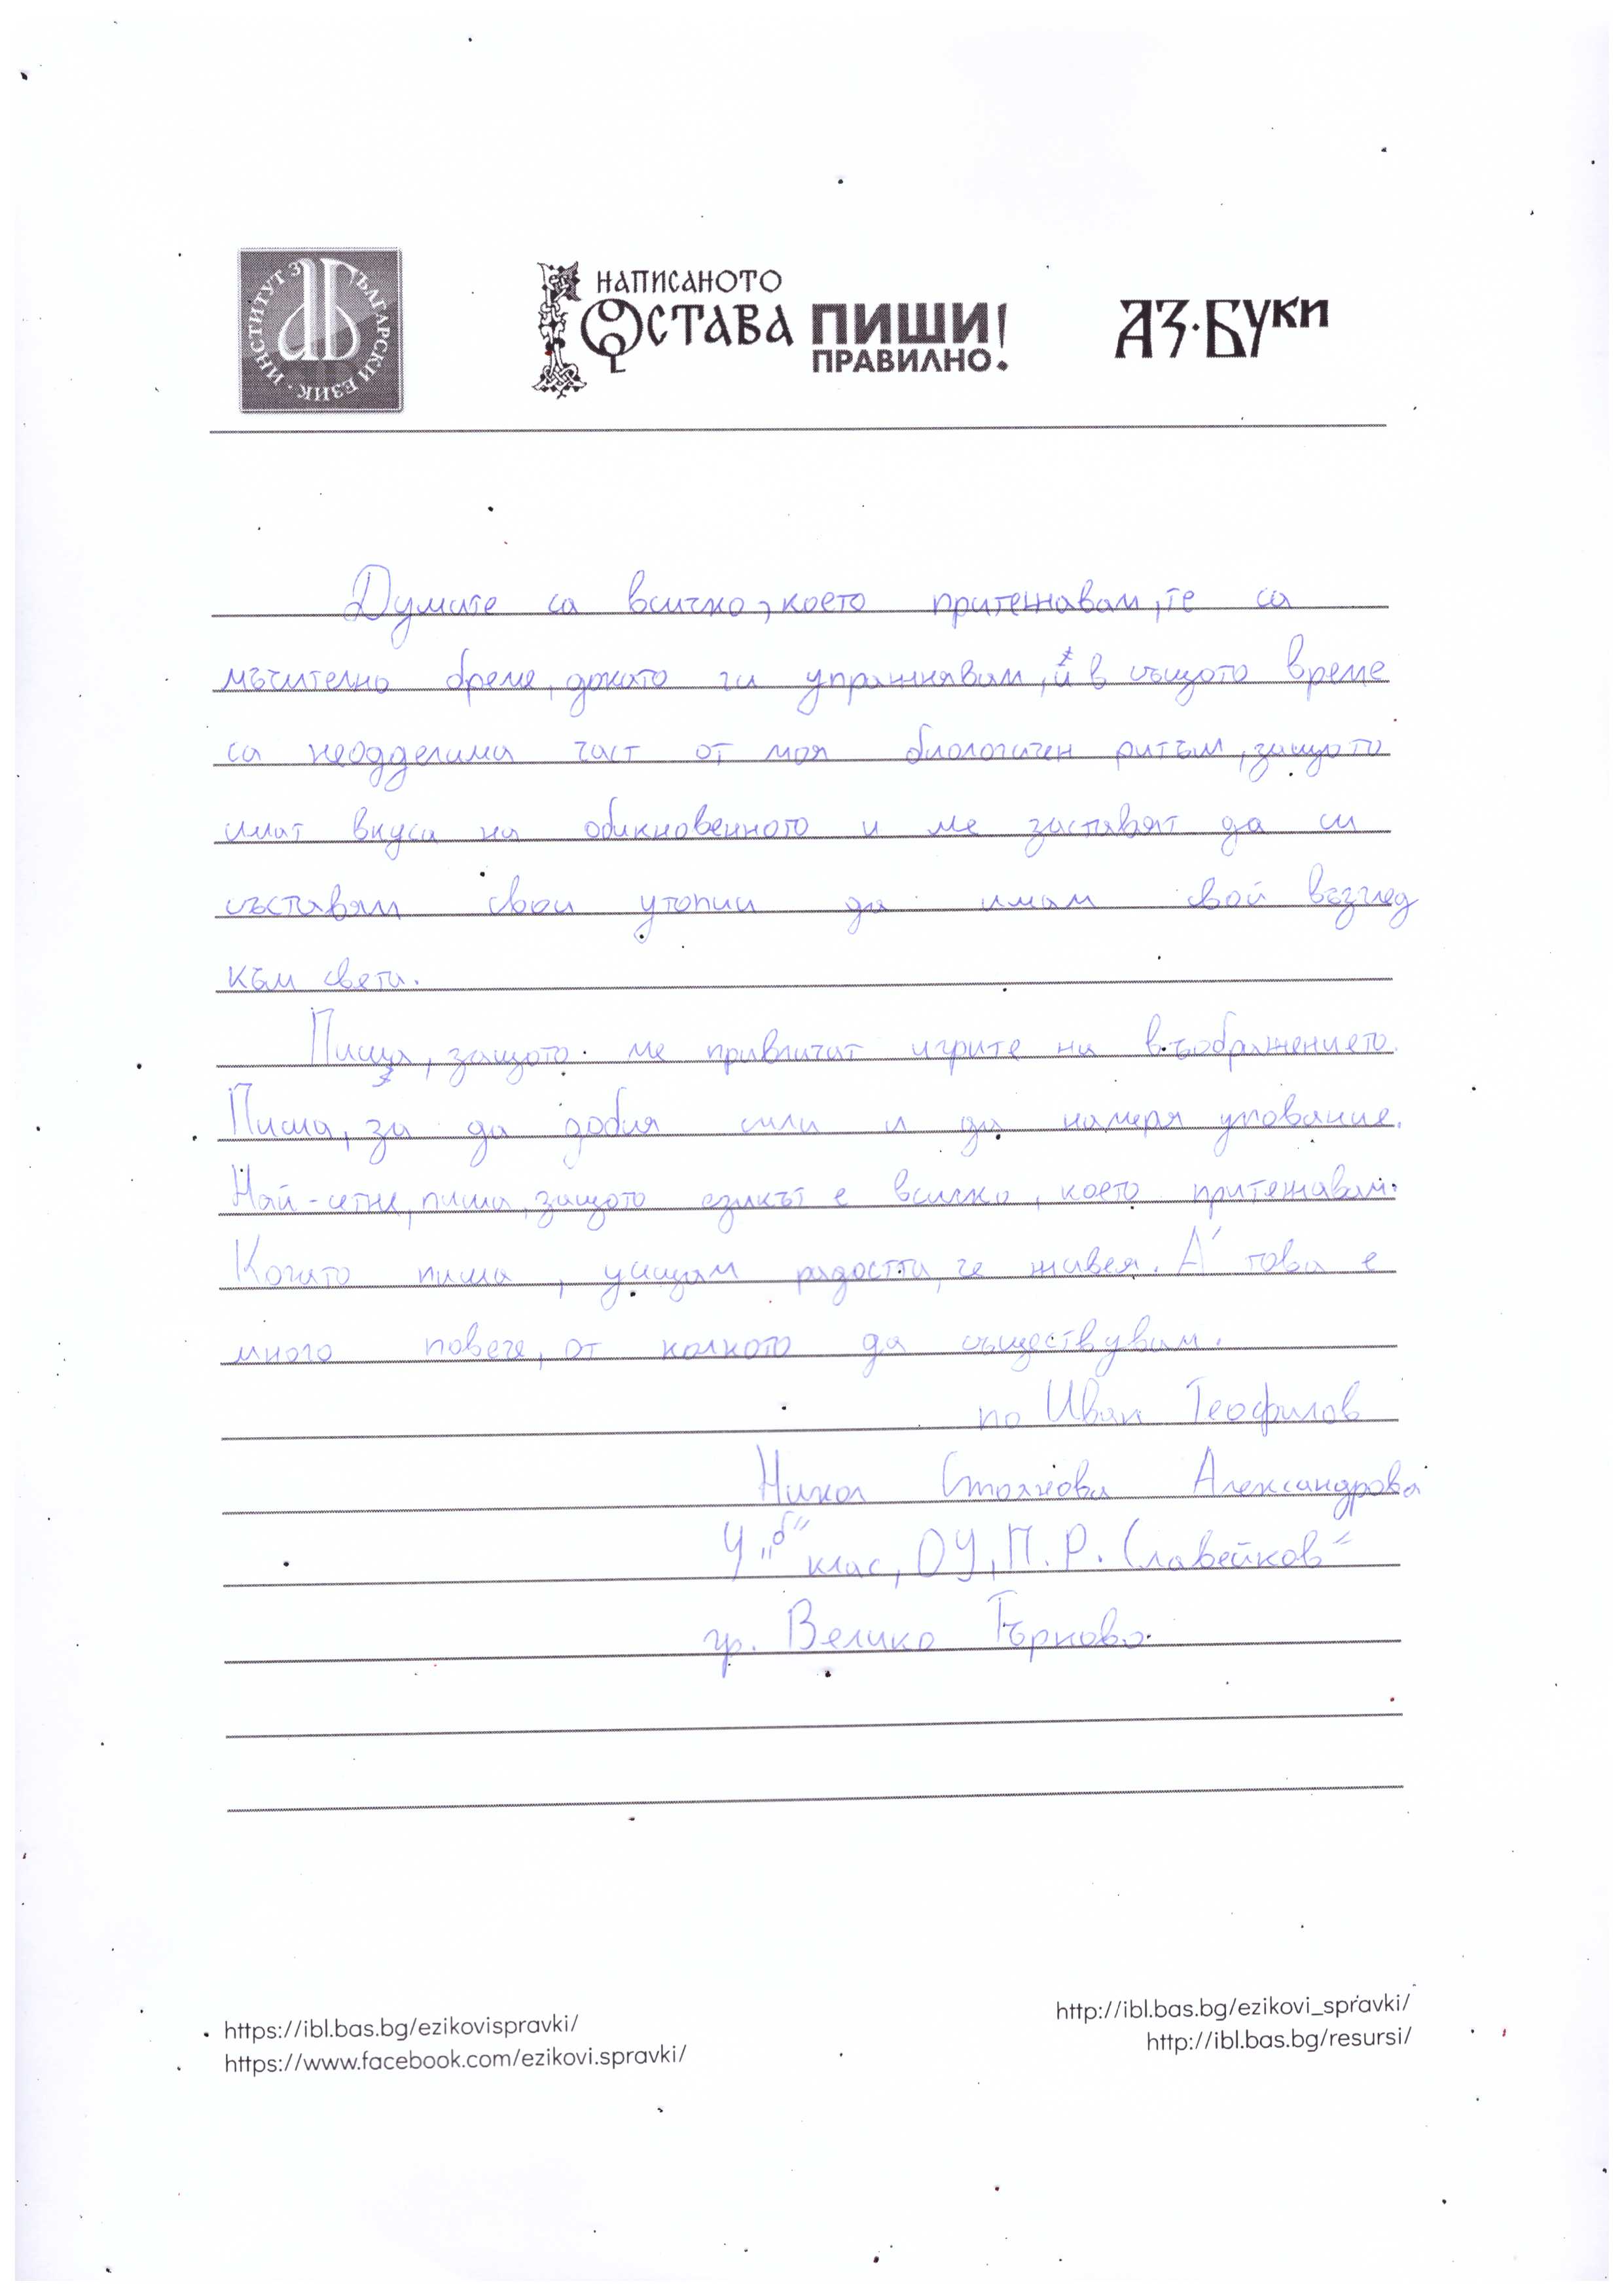 ИНСТИТУТ ЗА БЪЛГАРСКИ ЕЗИК
НАПИСАНОТО
ОСТАВА ПИШИ!
ПРАВИЛНО.
АЗ·БУКИ
Думите са всичко, което притежавам, те са
мъчително бреме, докато ги упражнявам, и в същото време
са неодделима част от моя биологичен ритъм, защото
имат вкуса на обикновенното и ме заставят да си
съставям свои утопии да имам свой възглед
към света.
Пиша, защото ме привличат игрите на въображението.
Пиша, за да добия сили и да намеря упование.
Най-сетне, пиша, защото езикът е всичко, което притежавам.
Когато пиша, усещам радостта, че живея. А това е
много повече, от колкото да съществувам.
по Иван Теофилов
Никол Стоянова Александрова
4 „б“ клас, ОУ „П. Р. Славейков“
гр. Велико Търново.
https://ibl.bas.bg/ezikovispravki/
https://www.facebook.com/ezikovi.spravki/
http://ibl.bas.bg/ezikovi_spravki/
http://ibl.bas.bg/resursi/